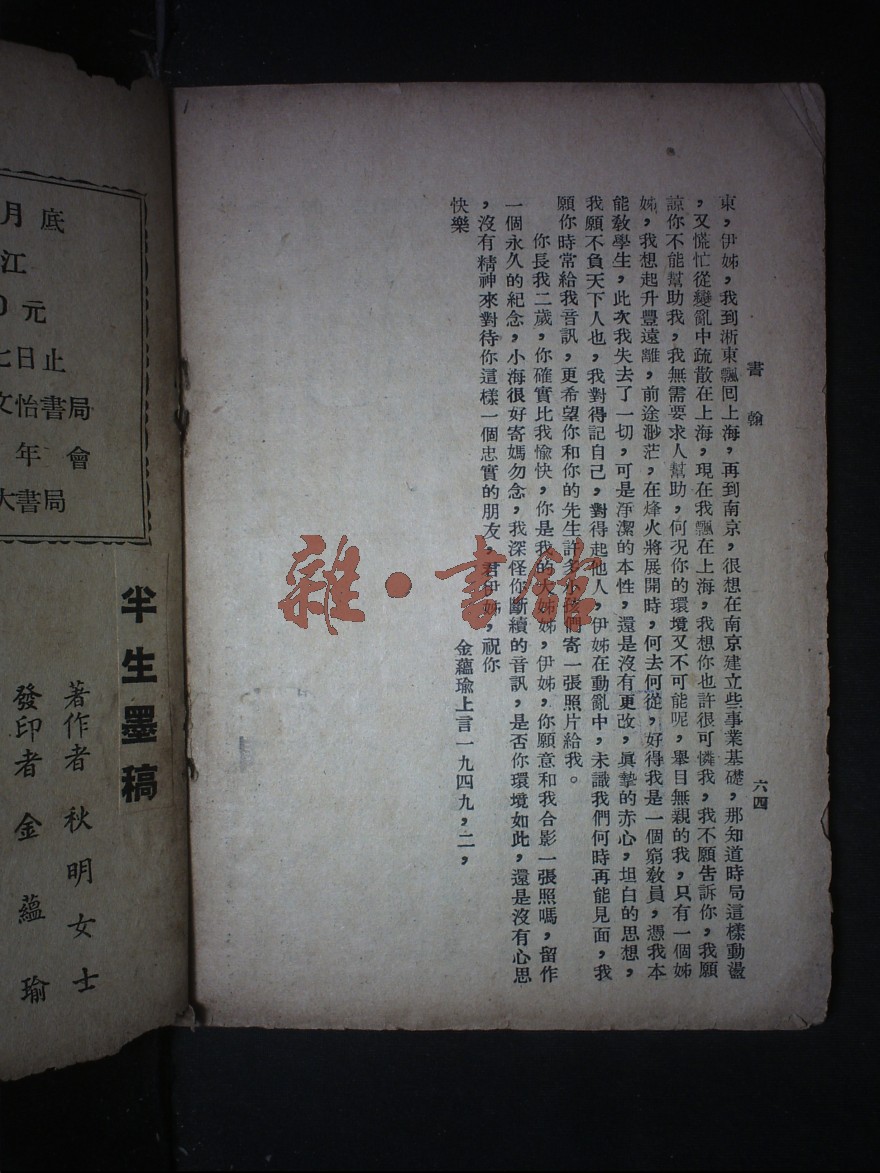 書翰
六四
東，伊姊，我到淅東飄囘上海，再到南京，很想在南京建立些事業基礎，那知道時局這樣動盪
，又慌忙從變亂中疏散在上海，現在我飄在上海，我想你也許很可憐我，我不願告訴你，我願
諒你不能幫助我，我無需要求人幫助，何況你的環境又不可能呢，舉目無親的我，只有一個姊
姊，我想起升豐遠離，前途渺茫，在烽火將展開時，何去何從，好得我是一個窮敎員，憑我本
能敎學生，此次我失去了一切，可是淨潔的本性，還是沒有更改，眞摯的赤心，坦白的思想，
我願不負天下人也，我對得記自己，對得起他人，伊姊在動亂中，未識我們何時再能見面，我
願你時常給我音訊，更希望你和你的先生許多小孩們寄一張照片給我。
你長我二歲，你確實比我愉快，你是我的大姊姊，伊姊，你願意和我合影一張照嗎，留作
一個永久的紀念，小海很好寄媽勿念，我深怪你斷續的音訊，是否你環境如此，還是沒有心思
，沒有精神來對待你這樣一個忠實的朋友，君伊姊，祝你
快樂
金蘊瑜上言一九四九，二，
半生墨稿
著作者 秋明女士
發印者 金蘊瑜
月底
江
0元
七日止
文怡書局
年會
大書局
雜·書館